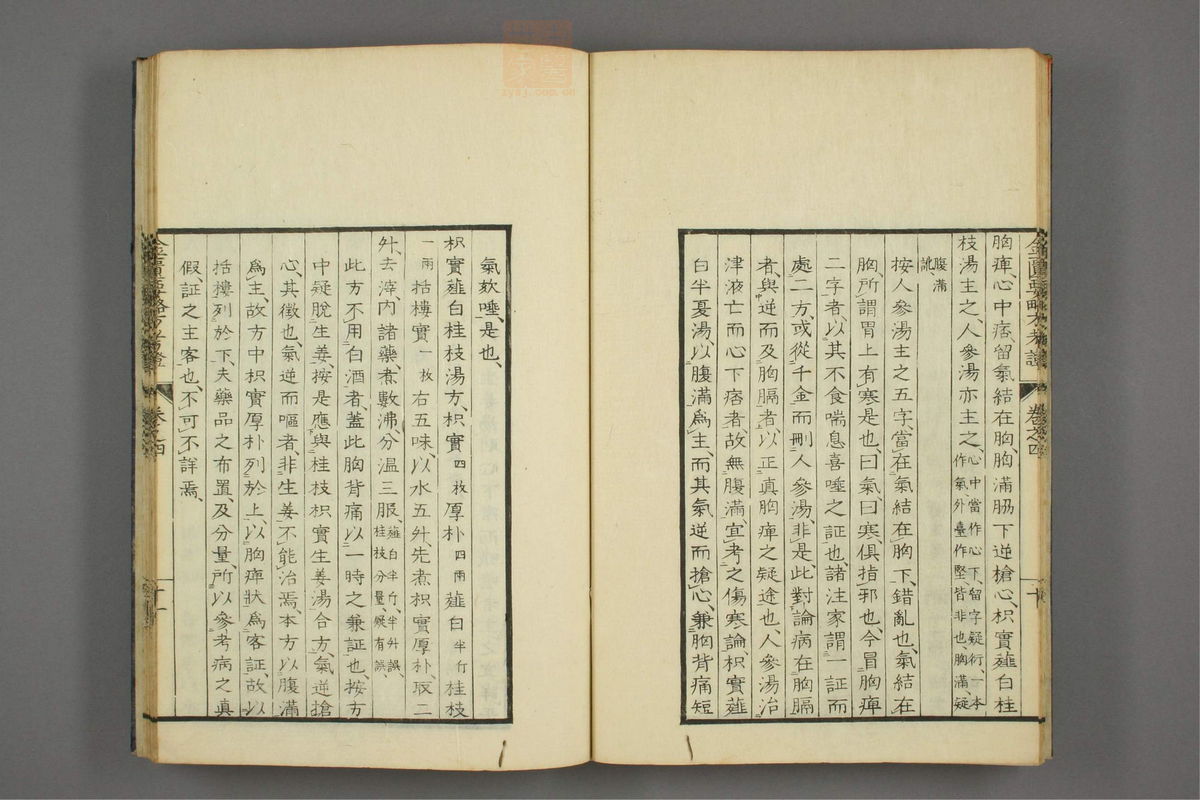 胸痺、心中痞留氣結在胸、胸滿脇下逆槍心、枳實薤白桂
枝湯主之、人參湯亦主之、心中當作心下、留字疑衍、一本作氣外臺作堅、皆非也、胸滿、疑
腹滿訛
按人參湯主之五字、當在氣結在胸下、錯亂也、氣結在
胸、所謂胃上有寒是也、曰氣、曰寒、俱指邪也、今冒胸痺
二字者、以其不食喘息喜唾之証也、諸注家謂一証而
處二方、或從千金而刪人參湯、非是、此對論病在胸膈
者、與逆而及胸膈者、以正真胸痺之疑途也、人參湯治
津液亡而心下痞者、故無腹滿、宜考之傷寒論、枳實薤
白半夏湯、以腹滿爲主、而其氣逆而搶心、兼胸背痛短
金匱要略方考證 卷之四 十
氣欬唾、是也、
枳實薤白桂枝湯方、枳實四枚厚朴四兩薤白半斤桂枝
一兩括樓實一枚右五味、以水五升先煮枳實厚朴取二
升、去滓、內諸藥、煮數沸、分溫三服、薤白半斤、半升誤、桂枝分量、疑有誤、
此方不用白酒者、蓋此胸背痛以一時之兼証也、按方
中疑脫生姜、按是應與桂枝枳實生姜湯合方、氣逆搶
心、其徵也、氣逆而嘔者、非生姜不能治焉、本方以腹滿
爲主、故方中枳實厚朴列於上、以胸痺狀爲客証、故以
括樓列於下、夫藥品之布置、及分量、所以參考病之真
假、証之主客也、不可不詳焉、
金匱要略方考證 卷之四 十一
zysj.com.cn